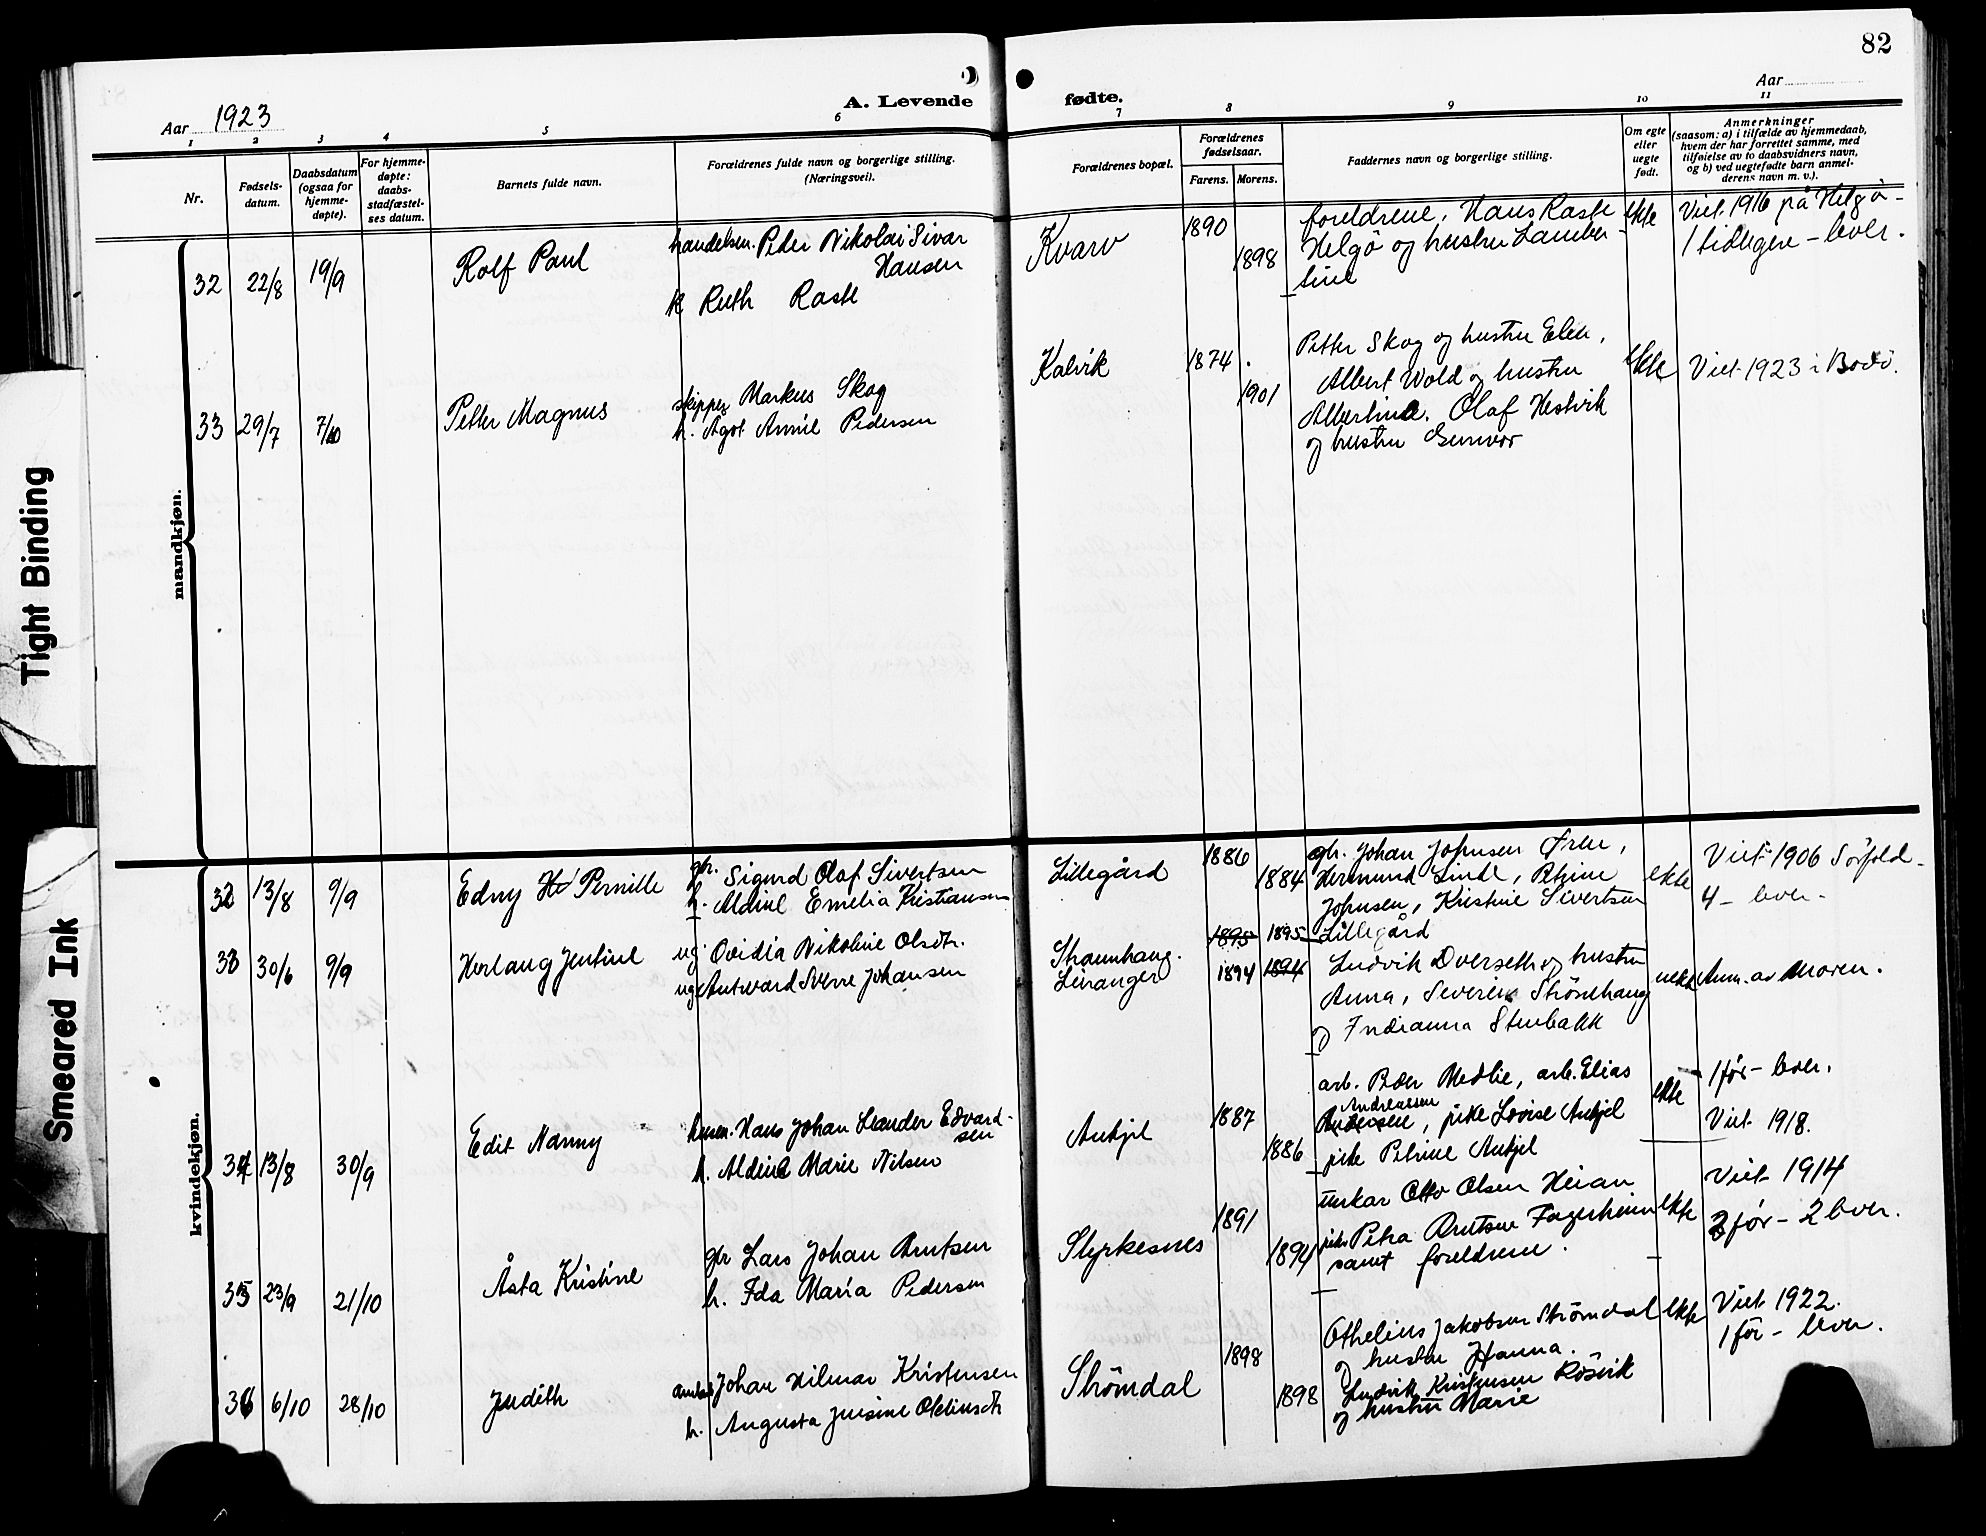 82
Aar 1923
A. Levende
fødte.
Aar
1 2 3 4 5 6 7 8 9 10 11
Nr.
Fødsels-
datum.
Daabsdatum
(ogsaa for
hjemme-
døpte).
For hjemme-
døpte:
daabs-
stadfæstel-
ses datum.
Barnets fulde navn.
Forældrenes fulde navn og borgerlige stilling.
(Næringsvei).
Forældrenes bopæl.
Forældrenes
fødselsaar.
Farens. Morens.
Faddernes navn og borgerlige stilling.
Om egte
eller
uegte
født.
Anmerkninger
(saasom: a) i tilfælde av hjemmedaab,
hvem der har forrettet samme, med
tilføielse av to daabsvidners navn,
og b) ved uegtefødte barn anmel-
derens navn m. v.).
mandkjøn.
32 22/8 19/9 Rolf Paul
handelsm. Peder Nikolai Sivar
Hansen
h Ruth Rask
Kvarv
1890
1898
foreldrene, Hans Rask
Helgö og hustru Lamber-
tine
ekte
Viet 1916 på Helgö-
1 tidligere - lever.
33 29/7 7/10 Petter Magnus
skipper Markus Skog
h. Agot Annie Pedersen
Kalvik
1874
1901
Petter Skog og hustru Elen,
Albert Wold og hustru
Albertine. Olaf Hestvik
og hustru Gunvor
ekte
Viet 1923 i Bodö.
Tight Binding
Smeared Ink
kvindekjøn.
32 13/8 9/9 Edny Pernille
gbr. Sigurd Olaf Sivertsen
h. Aldine Emelia Kristiansen
Lillegård
1886
1884
gbr. Johan Johnsen Øren,
Hermund Linde, Petrine
Johnsen, Kristine Sivertsen
Lillegård
ekte
Viet 1906 Sörfold-
4 - lever-
33 30/6 9/9 Herlaug Jentine
ug. Ovidia Nikoline Olsdtr.
ug. Antward Sverre Johansen
Straumhaug.
Leivanger
1895 1895
1894 1894
Ludvik Dverseth og hustru
Anna, Severin Strömhaug
og Indianna Stenbakk
uekte
Anm. av Moren.
34 13/8 30/9 Edit Nanny
husm. Hans Johan Leander Edvard-
sen
h. Aldine Marie Nilsen
Aukjel
1887
1886
arb. Peder Medlie, arb. Elias
Andreassen
Andersen, pike Lovise Aukjel
pike Petrine Aukjel
ekte
1 för - lever.
Viet 1918.
35 23/9 21/10 Åsta Kristine
gbr Lars Johan Arntsen
h. Ida Maria Pedersen
Styrkesnes
1891
1894
unkar Otto Olsen Heian
pike Petra Arntsen Fagerheim
samt foreldrene.
ekte
Viet 1914
3 för - 2 lever.
36 6/10 28/10 Judith
Johan Hilmar Kristensen
h. Augusta Jensine Oletinsdtr
Strömdal
1898
1898
Othelius Jakobsen Strömdal
og hustru Hanna.
Ludvik Kristensen Rösvik
og hustru Marie
ekte
Viet 1922.
1 för - lever.